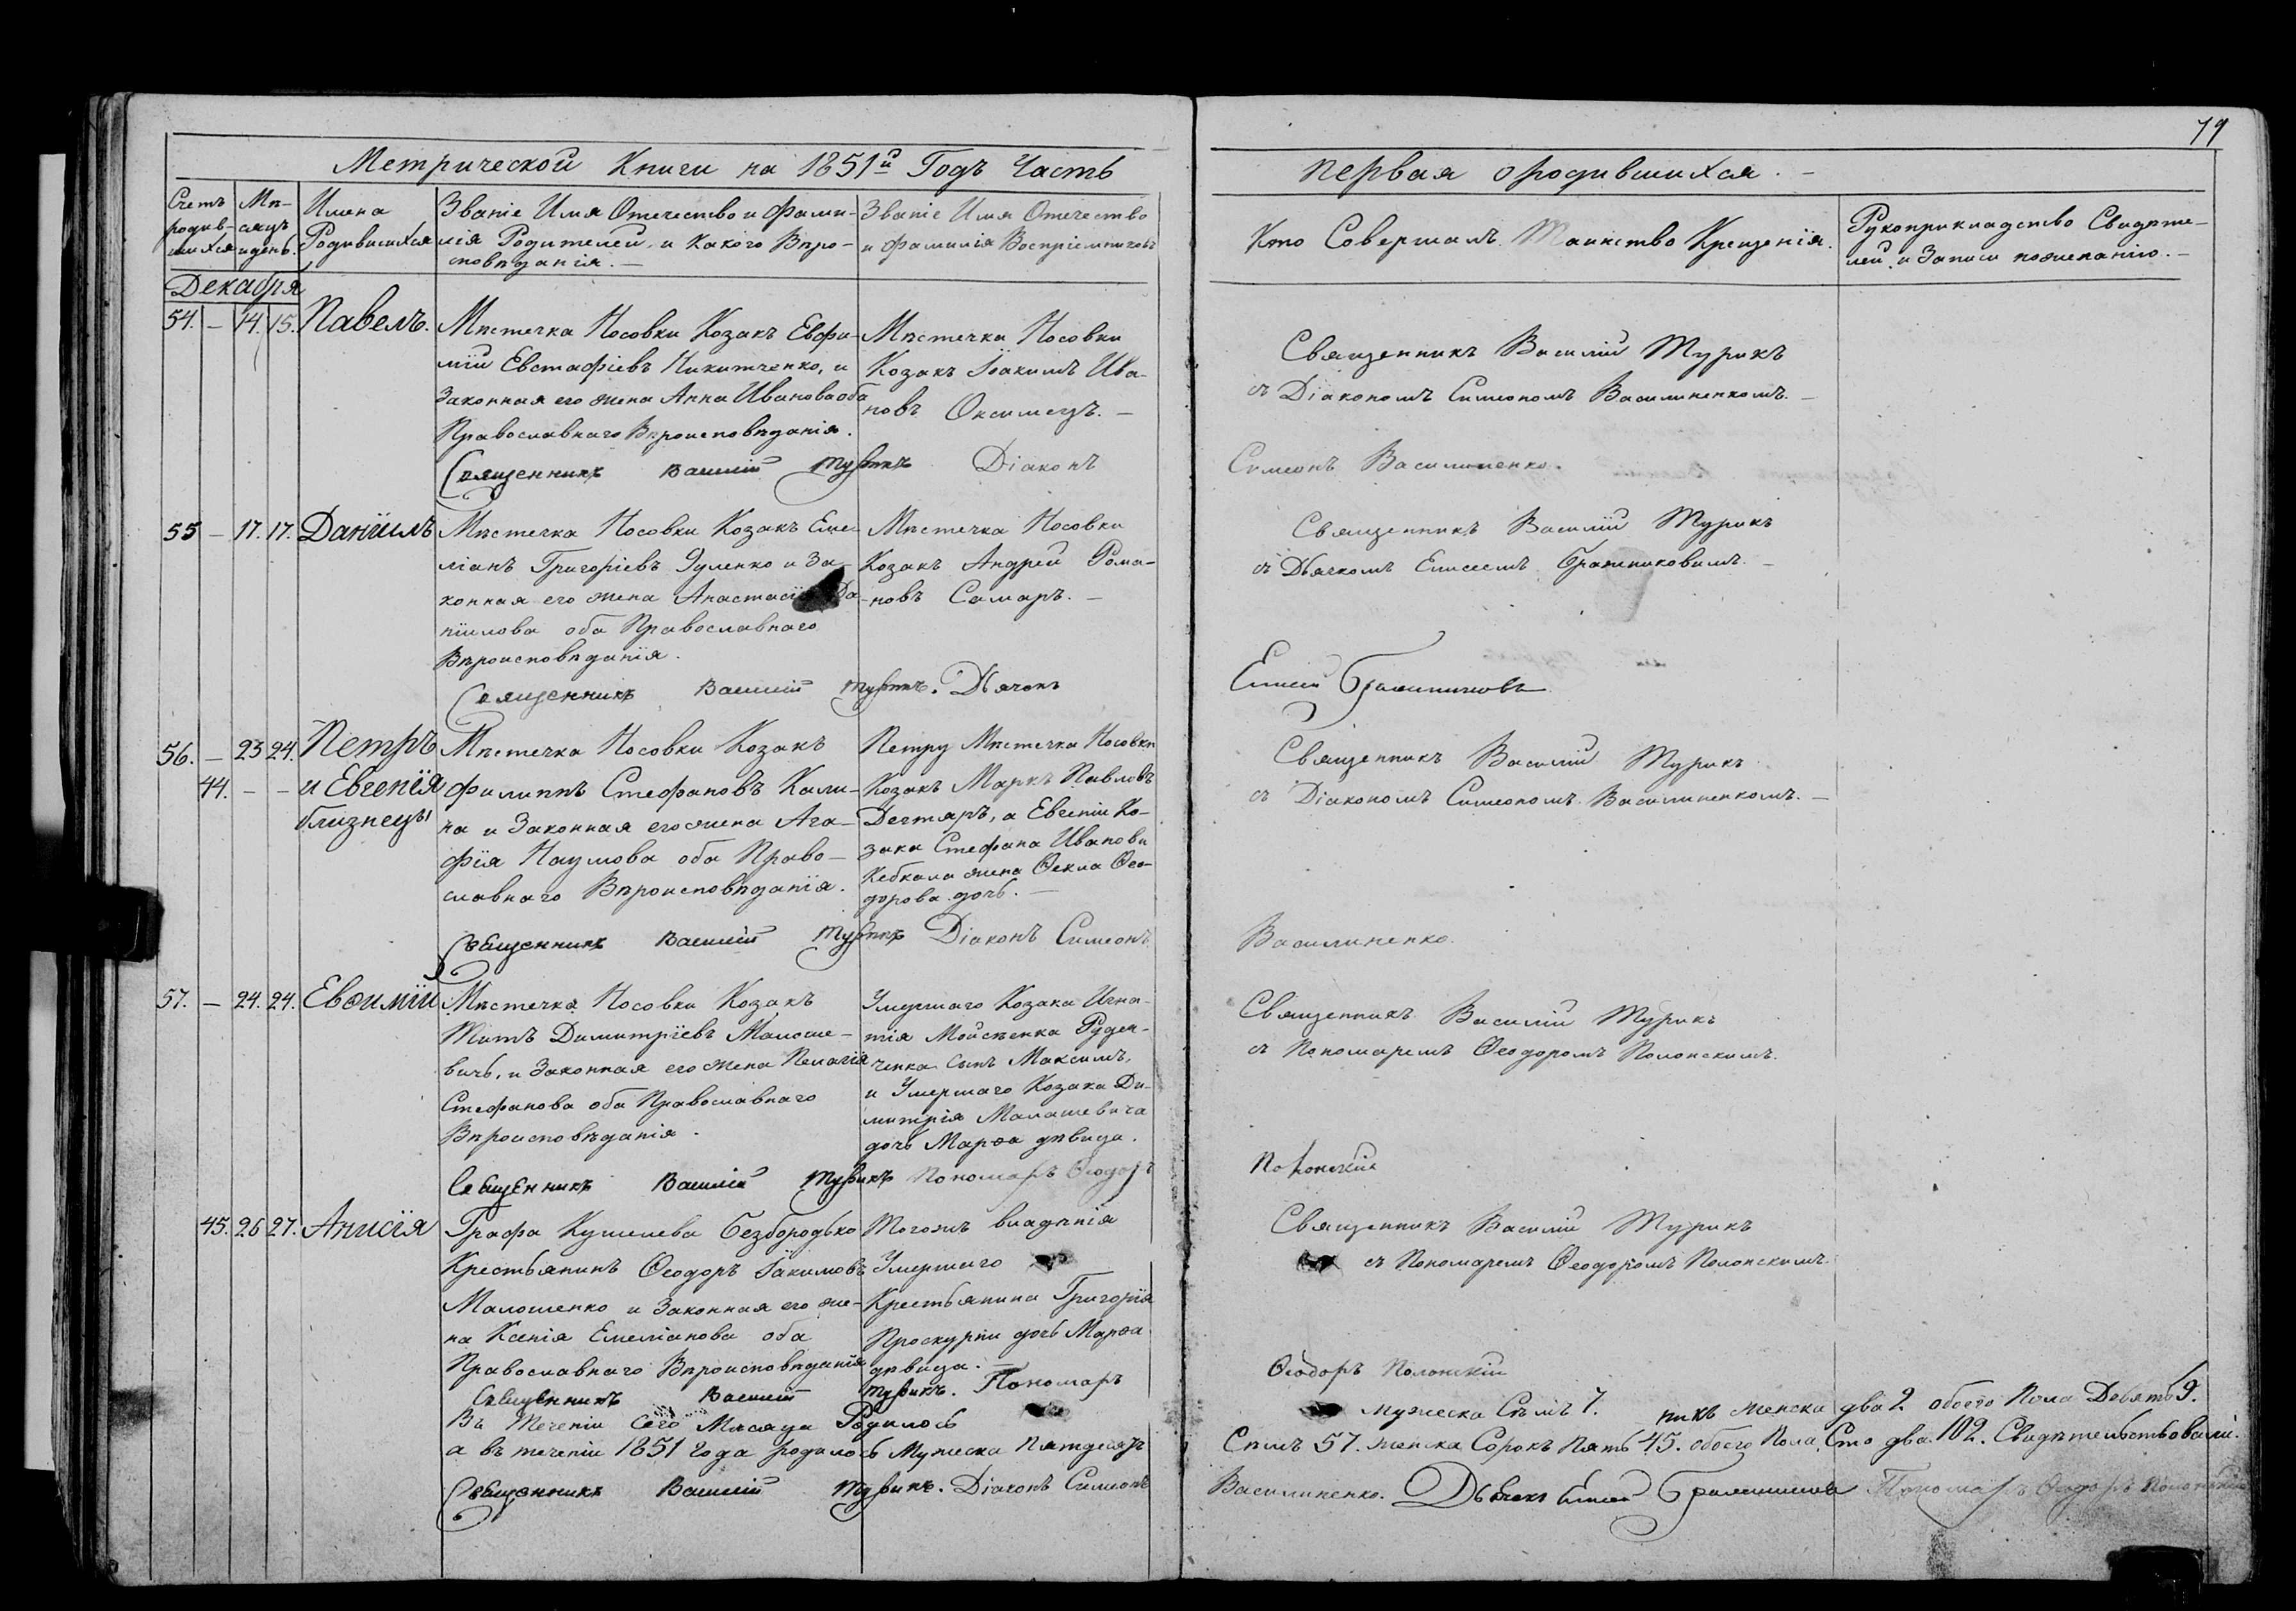 79
Метрической Книги на 1851й Годъ Часть
первая о родившихся. —
Счетъ родив-шихся
Мѣ-сяцъ и день.
Имена Родившихся
Званіе Имя Отечество и Фами-
лія Родителей, и какого Вѣро-
исповѣданія. —
Званіе Имя Отечество
и Фамилія Воспріемниковъ
Кто Совершалъ Таинство Крещенія.
Рукоприкладство Свидѣте-
лей и Записи по желанію. —
Декабря
54. — 14. 15. Павелъ.
Мѣстечка Носовки Козакъ Евфи-
мій Евстафіевъ Никитченко, и
Законная его жена Анна Иванова оба
Православнаго Вѣроисповѣданія.
Мѣстечка Носовки
Козакъ Іоакимъ Ива-
новъ
Священникъ Василій Турикъ
съ Діакономъ Симеономъ Василиненкомъ. —
Священникъ Василій Турикъ Діаконъ
Симеонъ Василиненко.
55 — 17. 17. Даніилъ
Мѣстечка Носовки Козакъ Еме-
ліанъ Григоріевъ и За-
конная его жена Анастасія Да-
ніилова оба Православнаго
Вѣроисповѣданія.
Мѣстечка Носовки
Козакъ Андрей Рома-
новъ Самаръ. —
Священникъ Василій Турикъ
съ Дьячкомъ Елисеемъ —
Священникъ Василій Турикъ. Дьячокъ
Елисей
56. — 23 24. Петръ
44. — — и Евгенія
близнецы
Мѣстечка Носовки Козакъ
Филиппъ Стефановъ Кали-
на и Законная его жена Ага-
фія Наумова оба Право-
славнаго Вѣроисповѣданія.
Петру Мѣстечка Носовки
Козакъ Маркъ Павловъ
Дегтяръ, а Евгеніи Ко-
зака Стефана Иванова
жена Ѳекла Ѳео-
дорова дочь. —
Священникъ Василій Турикъ
съ Діакономъ Симеономъ Василиненкомъ. —
Священникъ Василій Турикъ Діаконъ Симеонъ
Василиненко.
57. — 24. 24. Евѳимій
Мѣстечка Носовки Козакъ
Титъ Димитріевъ Малоше-
вичъ, и Законная его жена Пелагія
Стефанова оба Православнаго
Вѣроисповѣданія.
Умершаго Козака Игна-
тія Мойсѣенка Руден-
ченка сынъ Максимъ,
и Умершаго Козака Ди-
митрія Малашевича
дочь Марѳа дѣвица.
Священникъ Василій Турикъ
съ Пономаремъ Ѳеодоромъ Полонскимъ.
Священникъ Василій Турикъ Пономарь Ѳеодоръ
Полонскій
45. 26 27. Анисія
Графа Кушелева Безбородько
Крестьянинъ Ѳеодоръ Іакимовъ
Малошенко и Законная его же-
на Ксенія Емеліанова оба
Православнаго Вѣроисповѣданія
Тогожъ владѣнія
Умершаго
Крестьянина Григорія
Проскурни дочь Марѳа
дѣвица. —
Священникъ Василій Турикъ
съ Пономаремъ Ѳеодоромъ Полонскимъ.
Священникъ Василій Турикъ. Пономарь
Ѳеодоръ Полонскій
Въ теченіи сего Мѣсяца Родилось мужеска Семь 7. женска два 2 обоего Пола Девять 9.
а въ теченіи 1851 Года родилось Мужеска Пятдесятъ Семь 57. женска Сорокъ Пять 45. обоего Пола Сто два 102. Свидѣтельствовали.
Священникъ Василій Турикъ. Діаконъ Симеонъ Василиненко. Дьячокъ Елисей Пономарь Ѳеодоръ Полонскій